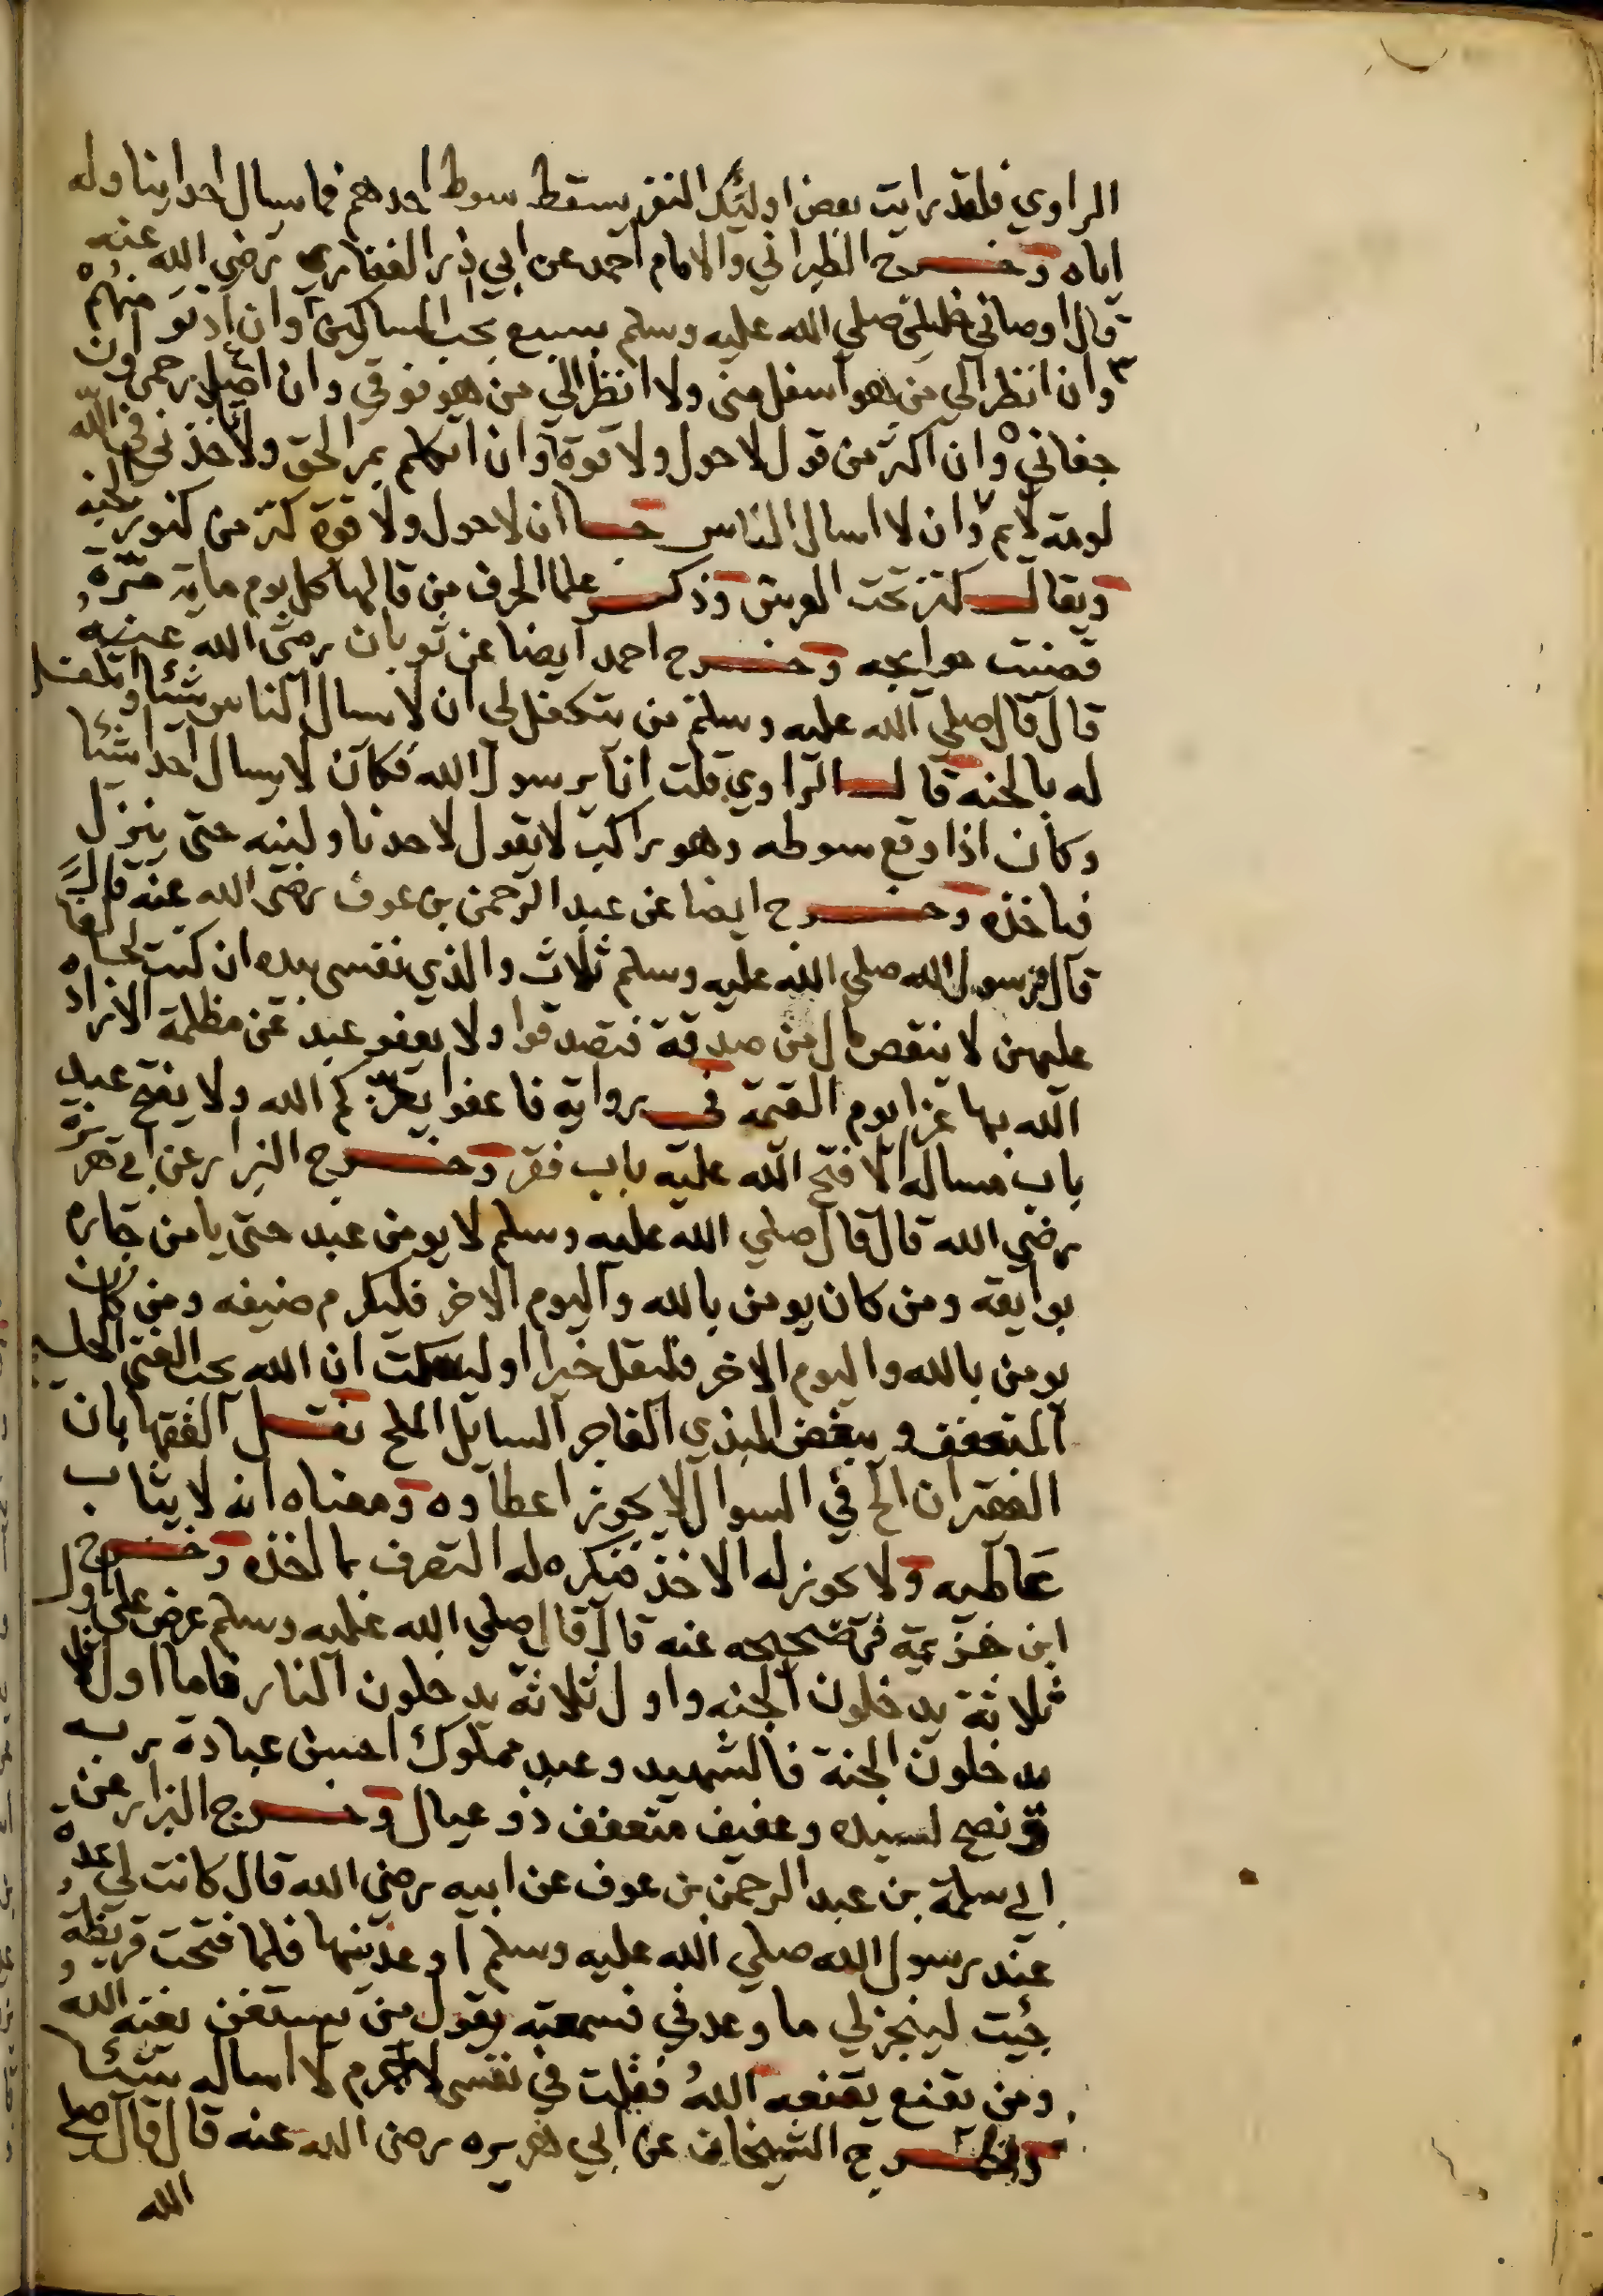 الراوي فلقد رايت بعض اوليك النفر يسقط سوط احدهم فما يسال احدا يناوله
اياه وخرج الطبراني والامام احمد عن ابي ذر الغفاري رضي الله عنه
قال اوصاني خليلي صلي الله عليه وسلم بسبع بحب المساكين وان ادنو منهم
وان انظر الي من هو اسفل مني ولا انظر الي من هو فوقي وان اصل رحمي وان
جفاني وان اكثر من قول لا حول ولا قوة وان اتكلم بمر الحق ولا تاخذني في الله
لومة لايم وان لا اسال الناس ان لا حول ولا قوة كنز من كنوز الجنه
ويقال كنز تحت العرش وذكر علما الحرف من قالها كل يوم ماية مرة
قضيت حوايجه وخرج احمد ايضا عن ثوبان رضي الله عنه
قال قال صلي الله عليه وسلم من يتكفل لي ان لا يسال الناس شيئا واتكفل
له بالجنه قال الراوي قلت انا يرسول الله فكان لا يسال احدا شيئا
وكان اذا وقع سوطه وهو راكب لا يقول لاحد ناولنيه حتي ينزل
فياخذه وخرج ايضا عن عبد الرحمن بن عوف رضي الله عنه قال
قال رسول الله صلي الله عليه وسلم ثلاث والذي نفسي بيده ان كنت لحالفا
عليهن لا ينقص مال من صدقة فتصدقوا ولا يعفو عبد عن مظلمة الا زاده
الله بها عزا يوم القيمة في رواية فاعفوا يعزكم الله ولا يفتح عبد
باب مساله الا فتح الله عليه باب فقر وخرج البزار عن ابي هريره
رضي الله قال قال صلي الله عليه وسلم لا يومن عبد حتي يامن جاره
بوايقه ومن كان يومن بالله واليوم الاخر فليكرم ضيفه ومن كان
يومن بالله واليوم الاخر فليقل خيرا او ليسكت ان الله يحب الغني الحليم
المتعفف ويبغض البذي الفاجر السايل الملح نقل الفقها بان
الفقير ان الح في السوال لا يجوز اعطاوه ومعناه انه لا يثاب
عاطيه ولا يجوز له الاخذ فيكره له التصرف بما اخذه وخرج
ابن خزيمة في صحيحه عنه قال قال صلي الله عليه وسلم عرض علي اول
ثلاثة يدخلون الجنه واول ثلاثة يدخلون النار فاما اول ثلاثة
يدخلون الجنة فالشهيد وعبد مملوك احسن عبادة ربه
ونصح لسيده وعفيف متعفف ذو عيال وخرج البزار عن
ابي سلمة بن عبد الرحمن بن عوف عن ابيه رضي الله قال كانت لي عدة
عند رسول الله صلي الله عليه وسلم اوعدنيها فلما فتحت قريظة
جيت لينجز لي ما وعدني فسمعته يقول من يستغن يغنه الله
ومن يقنع يقنعه الله فقلت في نفسي لا جرم لا اساله شيئا
واخرج الشيخان عن ابي هريره رضي الله عنه قال قال صلي
الله